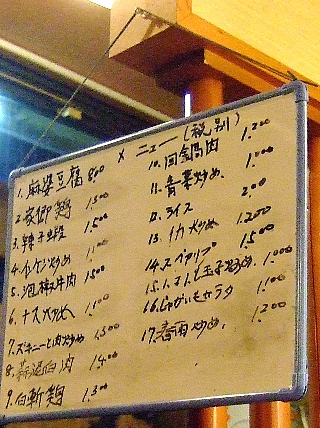 メニュー(税別)
1. 麻婆豆腐 800
2. 家郷鶏 1,500
3. 辣子蝦 1,500
4. インゲン炒め
5. 泡椒牛肉 1500
6. ナス炒め 1,100
7. ズキーニと肉炒め 1,300
8. 蒜泥白肉
9. 白斬鶏 1,300
10. 回鍋肉 1,200
11. 青菜炒め
12. ライス 200
13. イカ炒め 1,200
14. スペアリブ 1,500
15. トマトと玉子炒め 1,000
16. じゃがいもサラダ 1,100
17. 春雨炒め 1,200